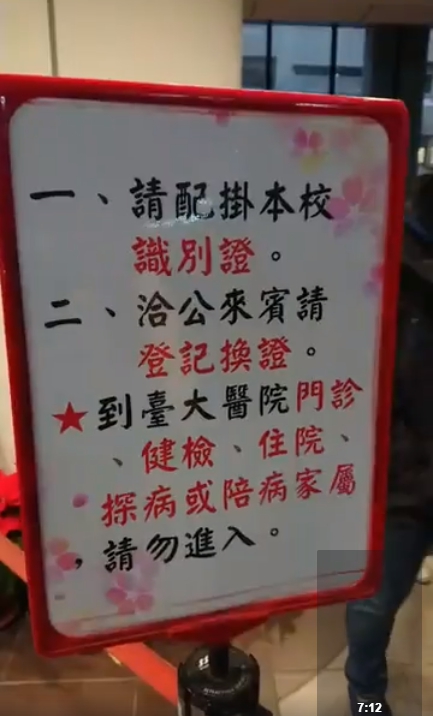 一、請配掛本校
識別證。
二、洽公來賓請
登記換證。
★到臺大醫院門診
、健檢、住院、
探病或陪病家屬
，請勿進入。
7:12